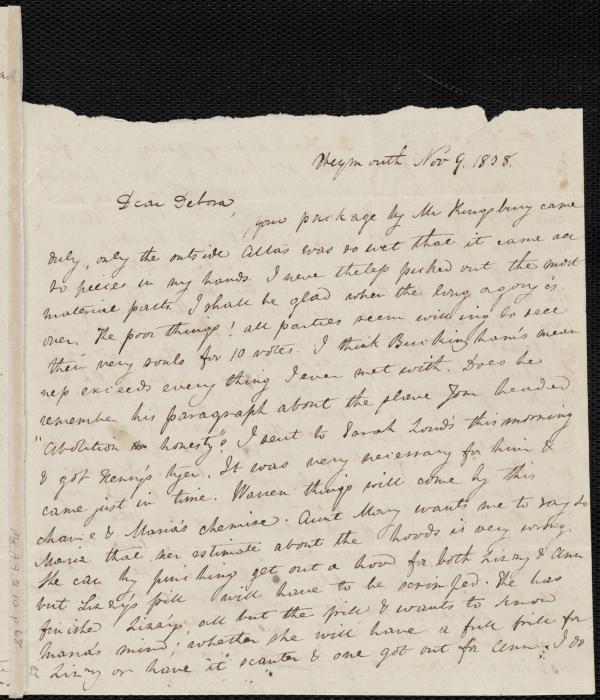 Weymouth. Nov 9. 1838.
Dear Debora,
your package by Mr Kingsbury came
duly, only the outside Atlas was so wet that it came all
to peices in my hands. I never theless picked out the most
material parts. I shall be glad when the long agony is
over. The poor things! all parties seem willing to sell
their very souls for 10 votes. I think Buckingham's mean
ness exceeds every thing I ever met with. Does he
remember his paragraph about the slave Tom headed
"Abolition honesty"? I sent to Sarah Lord's this morning
& got Henry's . It was very necessary for him &
came just in time. Warren things will come by this
chance & Maria's chemise. Aunt Mary wants me to say to
Maria that her estimate about the hoods is very wrong.
She can by pinching get out a hood for both Lizzy & Ann
but Lizzy's frill will have to be scrimped. She has
finished Lizzy's all but the frill & wants to know
Maria's mind; whether she will have a full frill for
Lizzy or have it scanter & one got out for Ann. I do